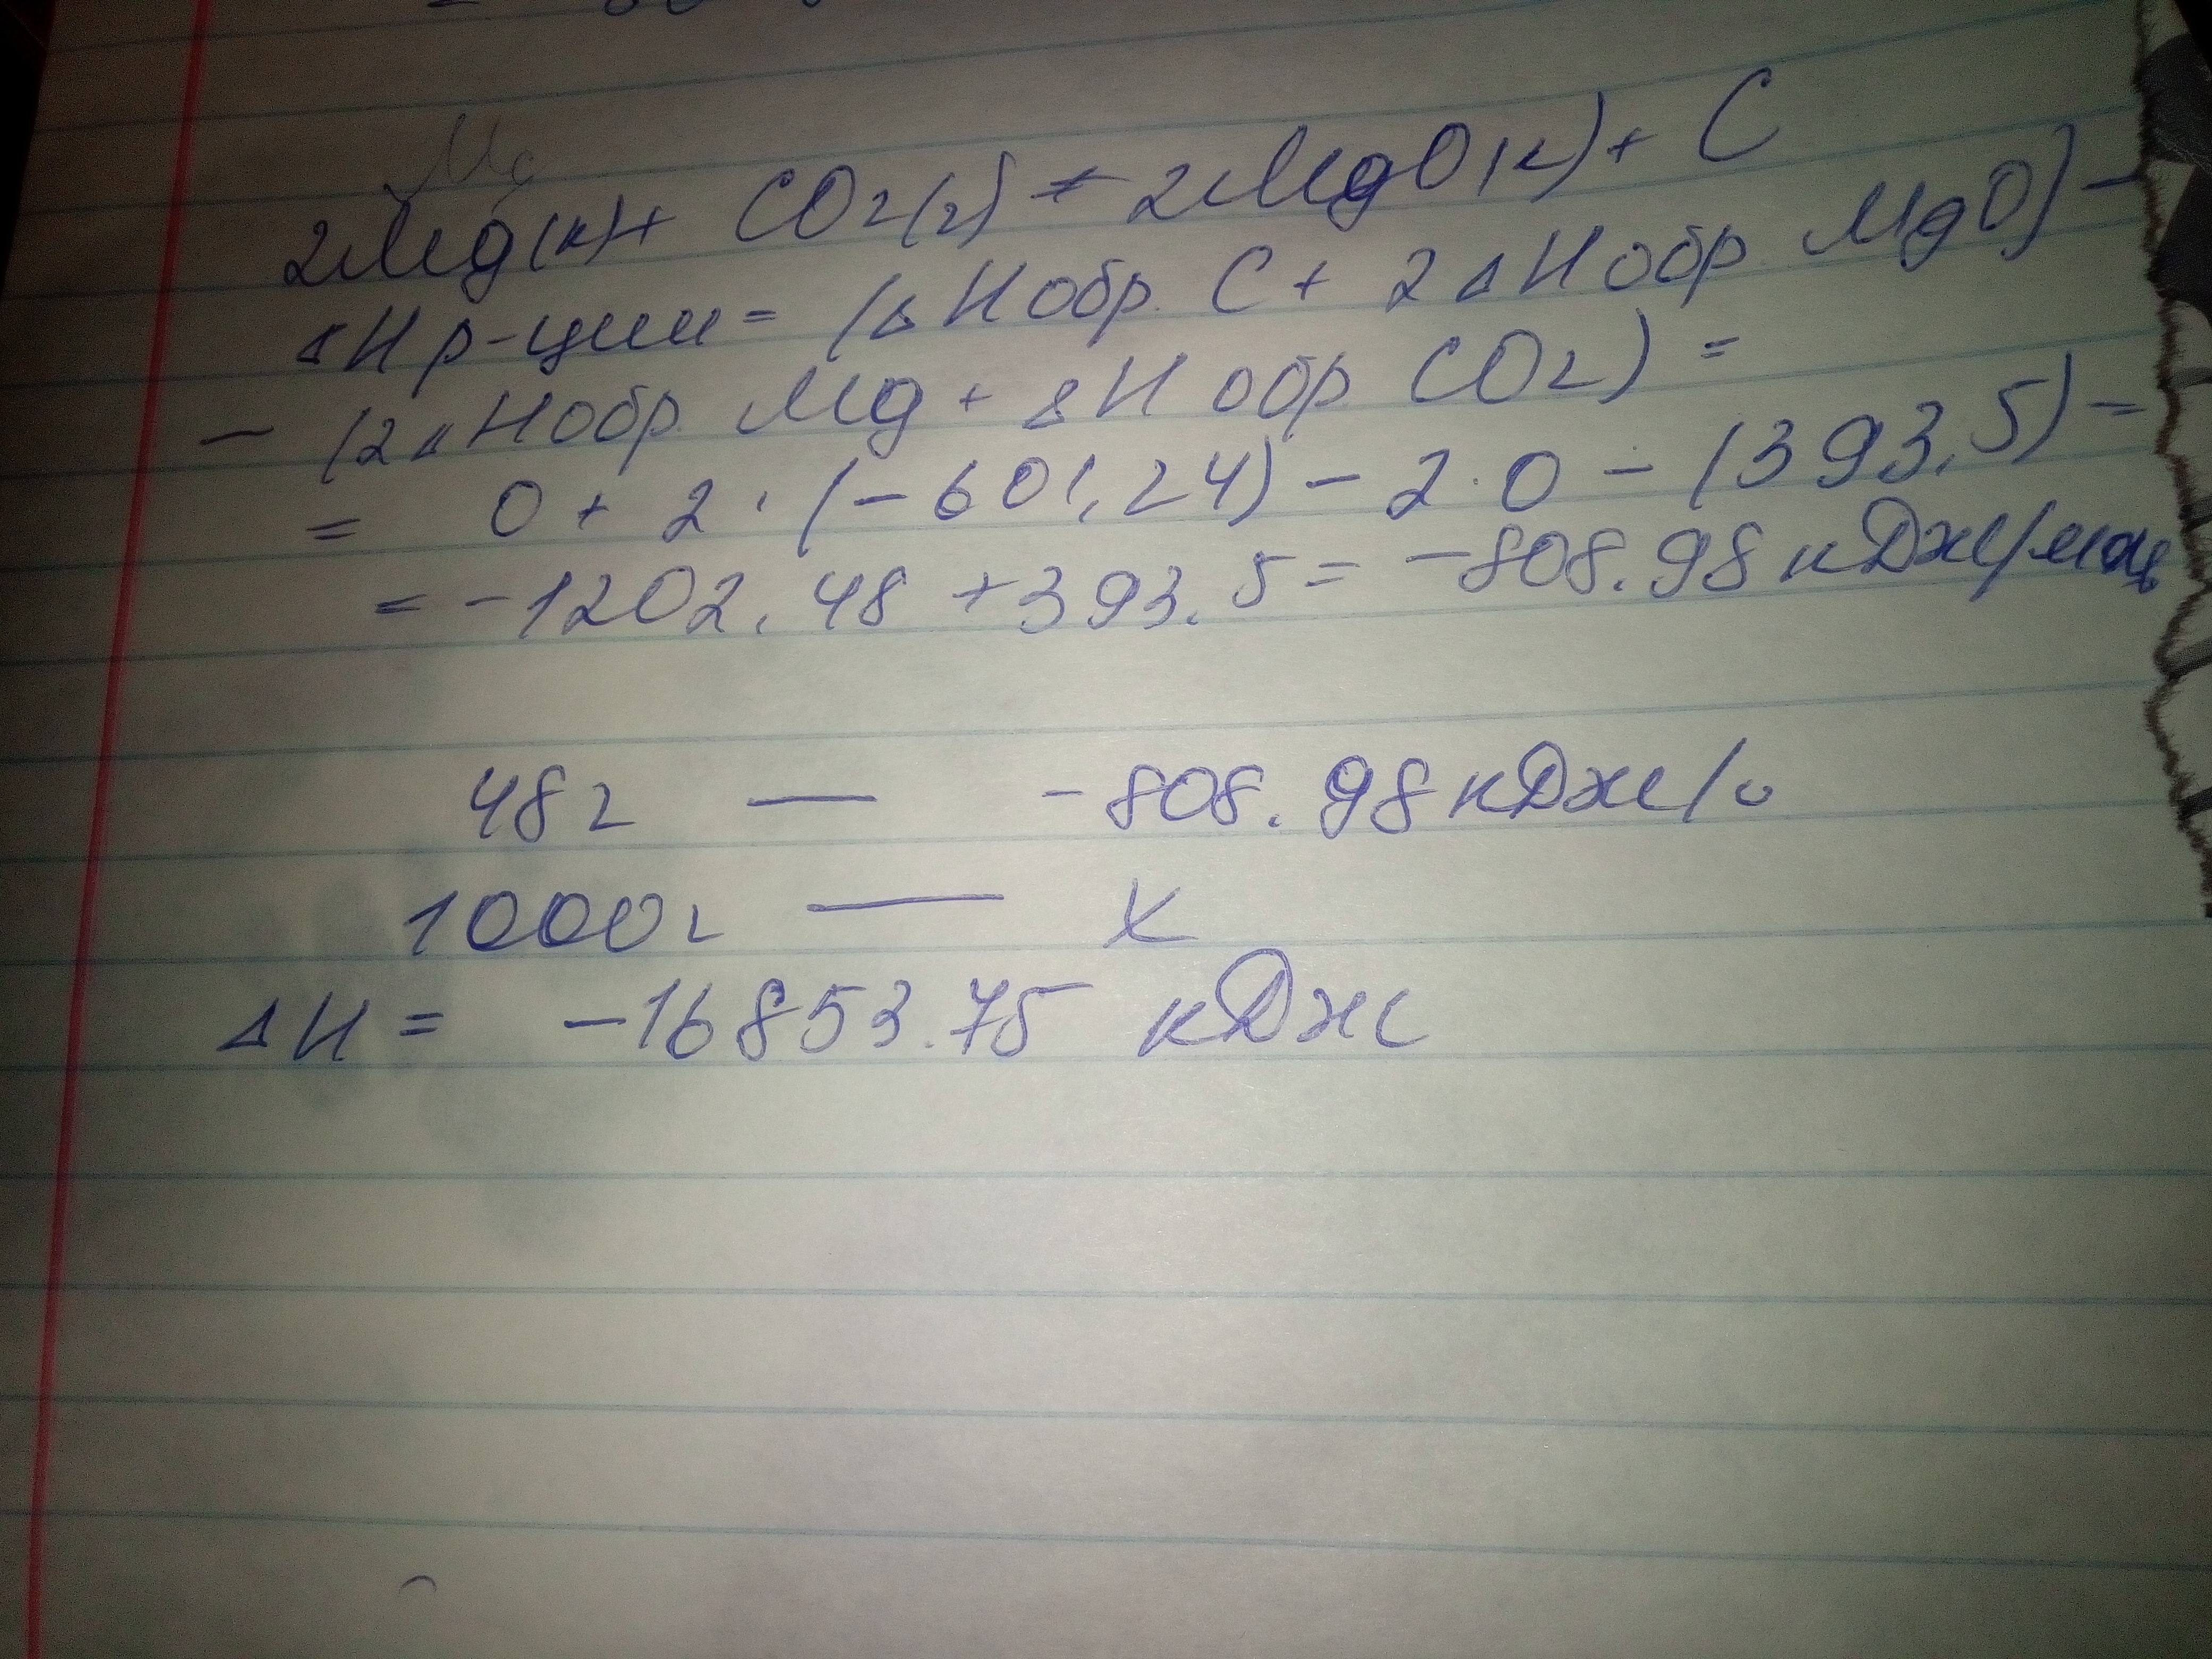 2Mg(к)+ CO2(г) = 2MgO(к)+ C
ΔH р-ции= (ΔH обр. C + 2ΔH обр. MgO) -
- (2ΔH обр. Mg + ΔH обр CO2) =
= 0 + 2 · (-601,24) - 2·0 - (393,5) =
= -1202,48 +393.5 = -808.98 кДж/моль
48г — -808.98 кДж/
1000г — X
ΔH = -16853.75 кДж